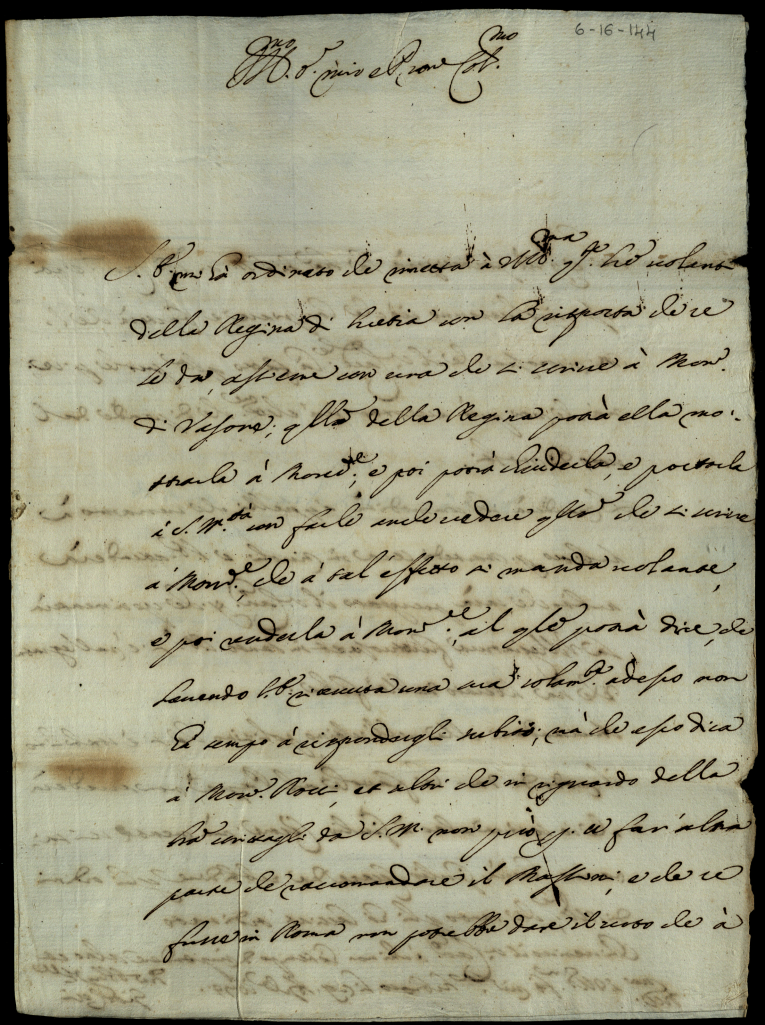 6-16-144
Ill.mo S.r mio e P.ron Col.mo
S. E. mi hà ordinato che rimetta à V. S. Ill.ma q.ta l'ra volante
della Regina di Suetia con la risposta che se
le dà, assieme con una che si scrive à Mons.r
di Vasone; q'lla della Regina potrà ella mo:
strarla à Mons.re, e poi potrà chiuderla, e portarla
à S. M.tà con farle anche vedere q'lla che si scrive
à Mons.re, che à tal'effetto si manda volante,
e poi renderla à Mons.re, al q'le potrà dire, che
havendo S. E. ricevuta una sua solam.te adesso non
hà tempo à rispondergli subito, mà che esso dica
à Mons.r Rocci, et altri che in riguardo della
l'ra scrittagli da S. M. non può p. se far'altra
parte che raccomandare il e che se
fusse in Roma non potrebbe dare il voto che à